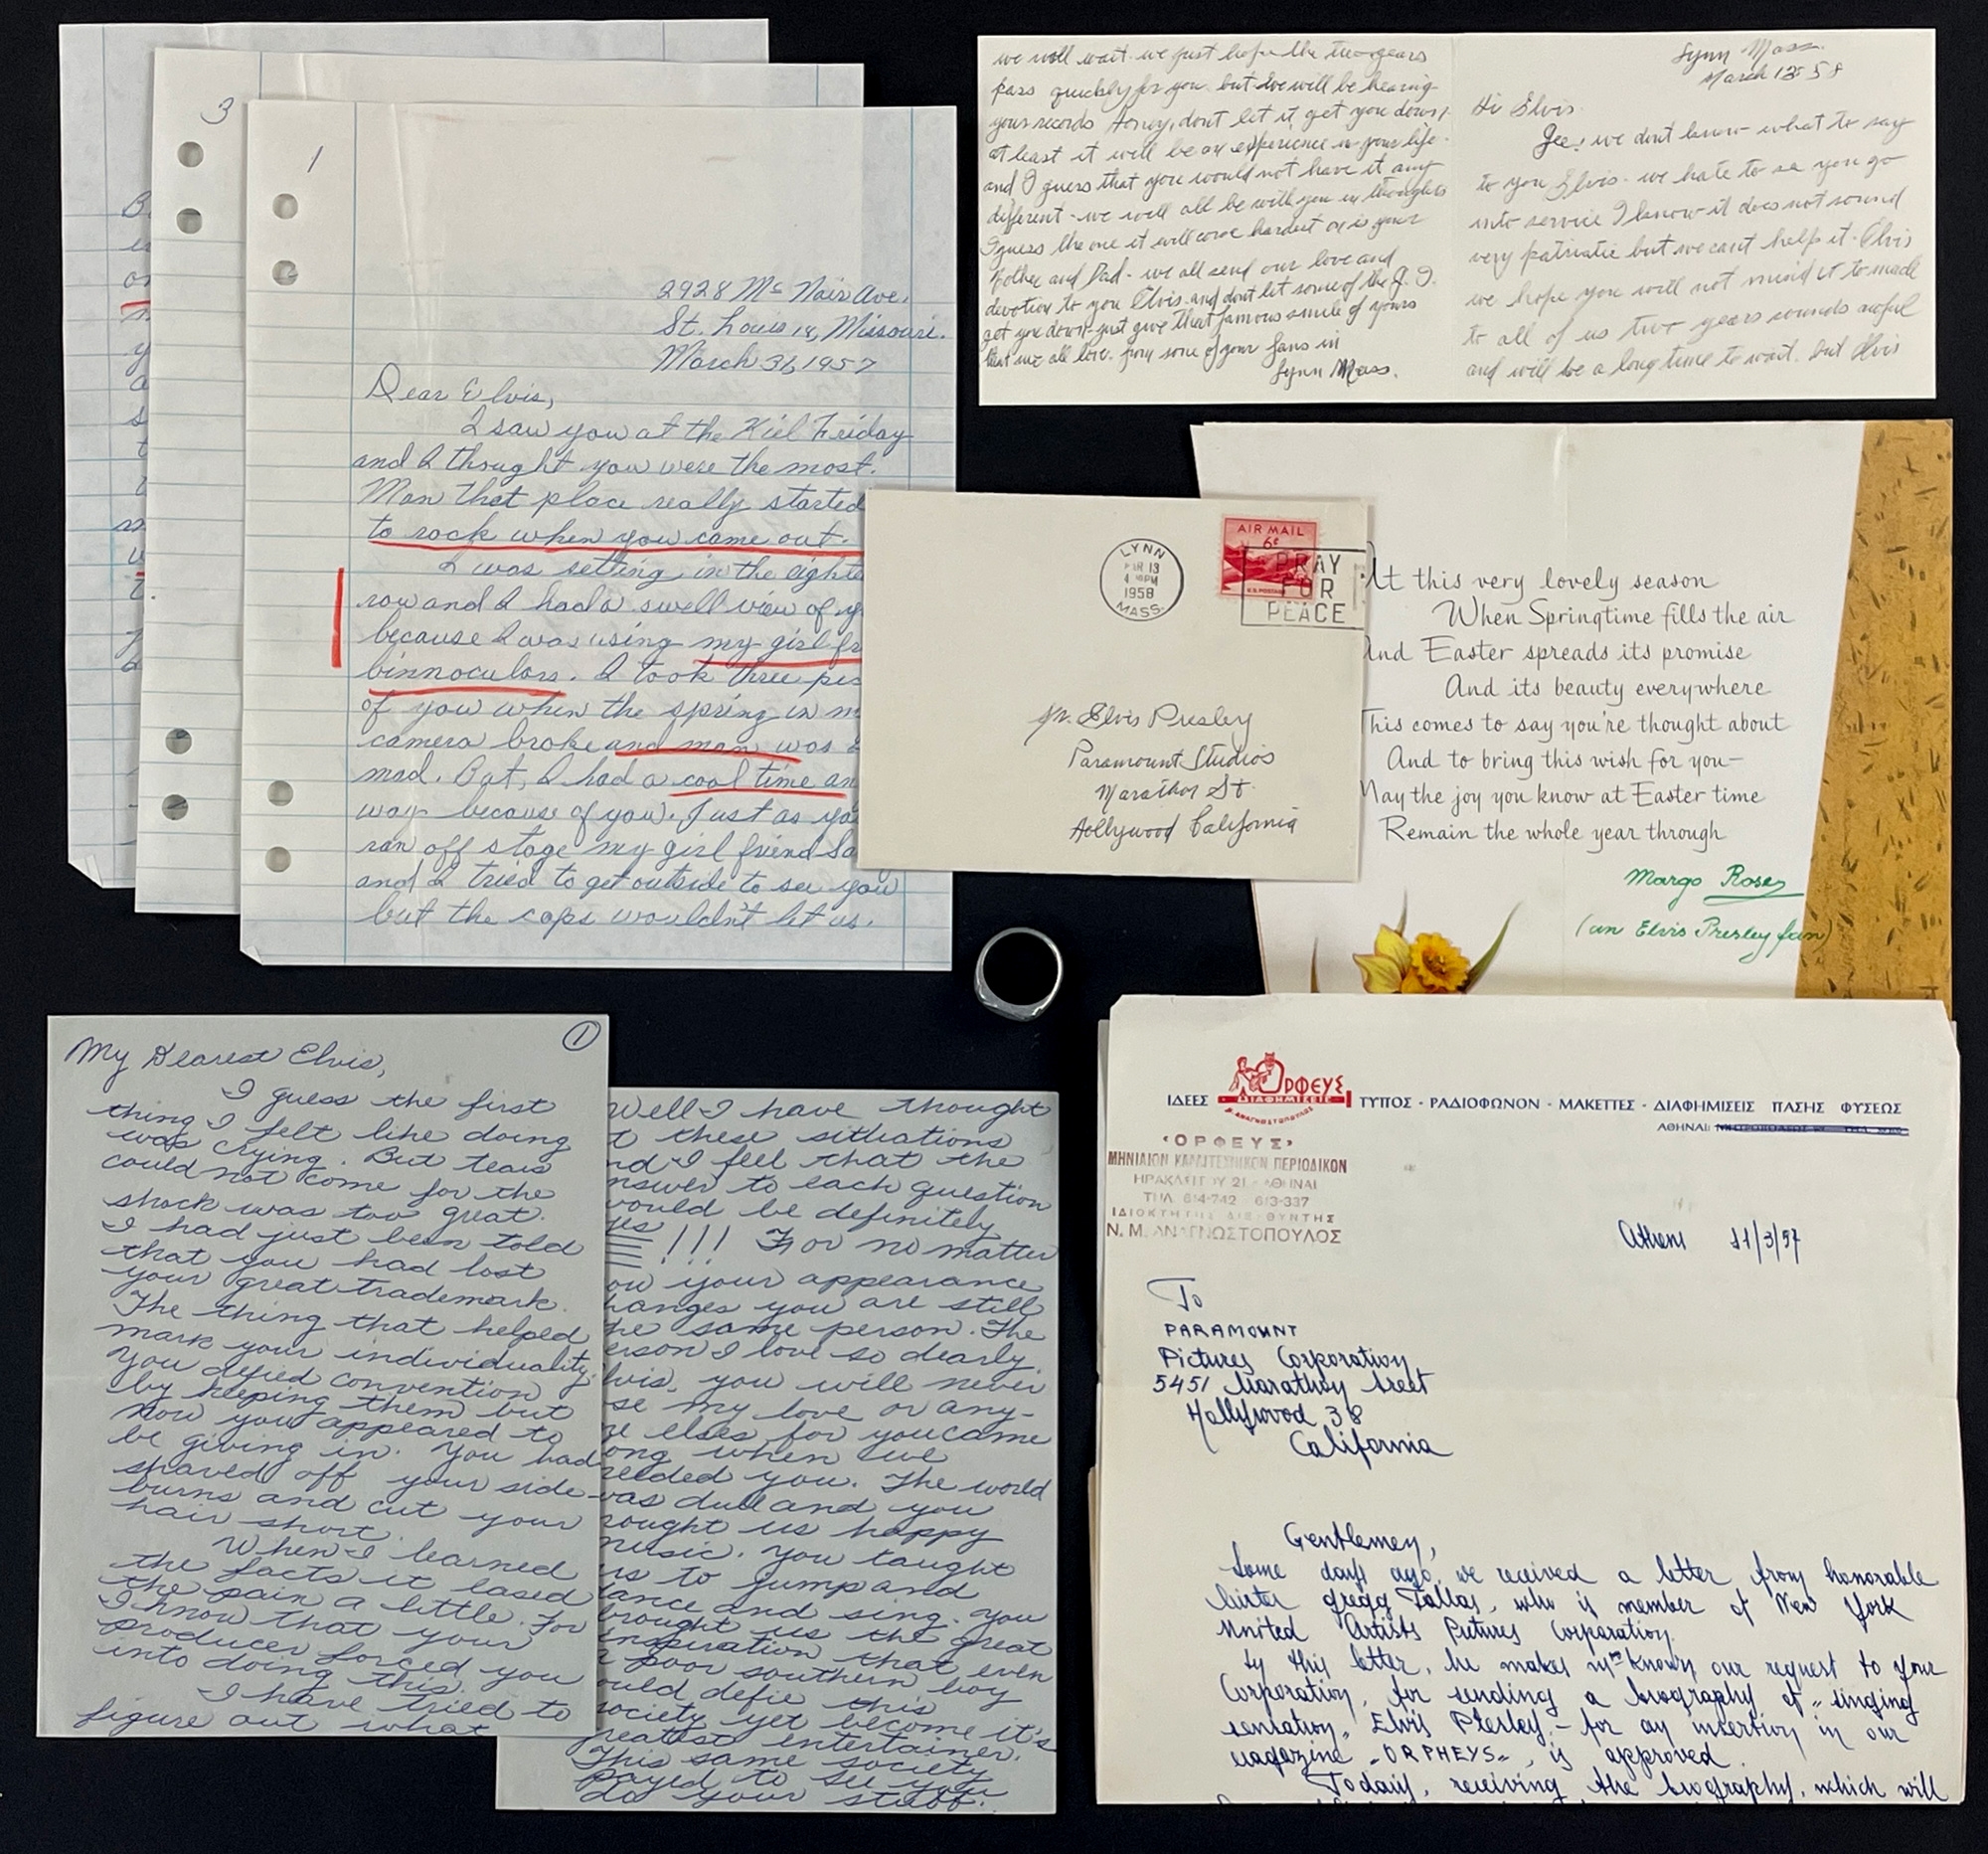 3
1
2928 Mc Nair Ave.
St. Louis 14, Missouri.
March 31, 1957
Dear Elvis,
I saw you at the Kiel Friday
and I thought you were the most.
Man that place really started
to rock when you come out.
I was setting in the eighte
row and I had a swell view of y
because I was using my girl fr
binnoculars. I took three pic
of you when the spring in m
camera broke and man was I
mad. But, I had a cool time an
way because of you. Just as yo
ran off stage my girl friend Sa
and I tried to get outside to see you
but the cops wouldn't let us.
we will wait. we just hope the two years
pass quickly for you. but we will be hearing
your records Honey, dont let it get you down,
at least it will be an experience in your life.
and I guess that you would not have it any
different. we will all be with you in thoughts
I guess the one it will come hardest on is your
Mother and Dad. we all send our love and
devotion to you Elvis. and dont let some of the G. I.
get you down just give that famous smile of yours
that we all love. from some of your fans in
Lynn Mass.
Lynn Mass.
March 13 58
Hi Elvis
Gee, we dont know what to say
to you Elvis. we hate to se you go
into service I know it does not sound
very patriatic but we cant help it. Elvis
we hope you will not mind it to much
to all of us two years sounds awful
and will be a long time to wait. but Elvis
LYNN
MAR 13
4 PM
1958
MASS.
AIR MAIL
6¢
U.S. POSTAGE
PRAY
FOR
PEACE
Mr. Elvis Presley
Paramount Studios
Marathon St.
Hollywood California
At this very lovely season
When Springtime fills the air
And Easter spreads its promise
And its beauty everywhere
This comes to say you're thought about
And to bring this wish for you—
May the joy you know at Easter time
Remain the whole year through
Margo Rose
(an Elvis Presley fan)
1
My Dearest Elvis,
I guess the first
thing I felt like doing
was crying. But tears
could not come for the
shock was too great.
I had just been told
that you had lost
your great trademark.
The thing that helped
mark your individuality.
You defied convention
by keeping them but
now you appeared to
be giving in. You had
shaved off your side-
burns and cut your
hair short.
When I learned
the facts it eased
the pain a little. For
I know that your
producer forced you
into doing this.
I have tried to
figure out what
Well I have thought
t these situations
nd I feel that the
nswer to each question
would be definitely
yes !!! For no matter
ow your appearance
hanges you are still
he same person. The
erson I love so dearly.
lvis, you will never
se my love or any-
ne elses for you came
ong when we
eeded you. The world
was dull and you
rought us happy
music. You taught
us to jump and
dance and sing. You
brought us the great
inspiration that even
a poor southern boy
ould defie this
society yet become it's
greatest entertainer.
This same society
payed to see you
do your stuff.
ΙΔΕΕΣ
ΟΡΦΕΥΣ
ΔΙΑΦΗΜΙΣΕΙΣ
ΤΥΠΟΣ - ΡΑΔΙΟΦΩΝΟΝ - ΜΑΚΕΤΤΕΣ - ΔΙΑΦΗΜΙΣΕΙΣ ΠΑΣΗΣ ΦΥΣΕΩΣ
ΑΘΗΝΑΙ:
«ΟΡΦΕΥΣ»
ΜΗΝΙΑΙΟΝ ΚΑΛΛΙΤΕΧΝΙΚΟΝ ΠΕΡΙΟΔΙΚΟΝ
ΗΡΑΚΛΕΙΤΟΥ 21 - ΑΘΗΝΑΙ
ΤΗΛ. 614-742 613-337
ΙΔΙΟΚΤΗΤΗΣ ΔΙΕΥΘΥΝΤΗΣ
Ν. Μ. ΑΝΑΓΝΩΣΤΟΠΟΥΛΟΣ
Athens 11/3/57
To
PARAMOUNT
Pictures Corporation
5451 Marathon Street
Hollywood 38
California
Gentlemen,
Some days ago, we received a letter from honorable
Mister Gregg Tallas, who is member of New York
United Artists Pictures Corporation.
By this letter, he makes us known our request to your
Corporation, for sending a biography of "singing
sensation" Elvis Presley - for an insertion in our
magazine "ORPHEYS", is approved.
Today, receiving the biography, which will